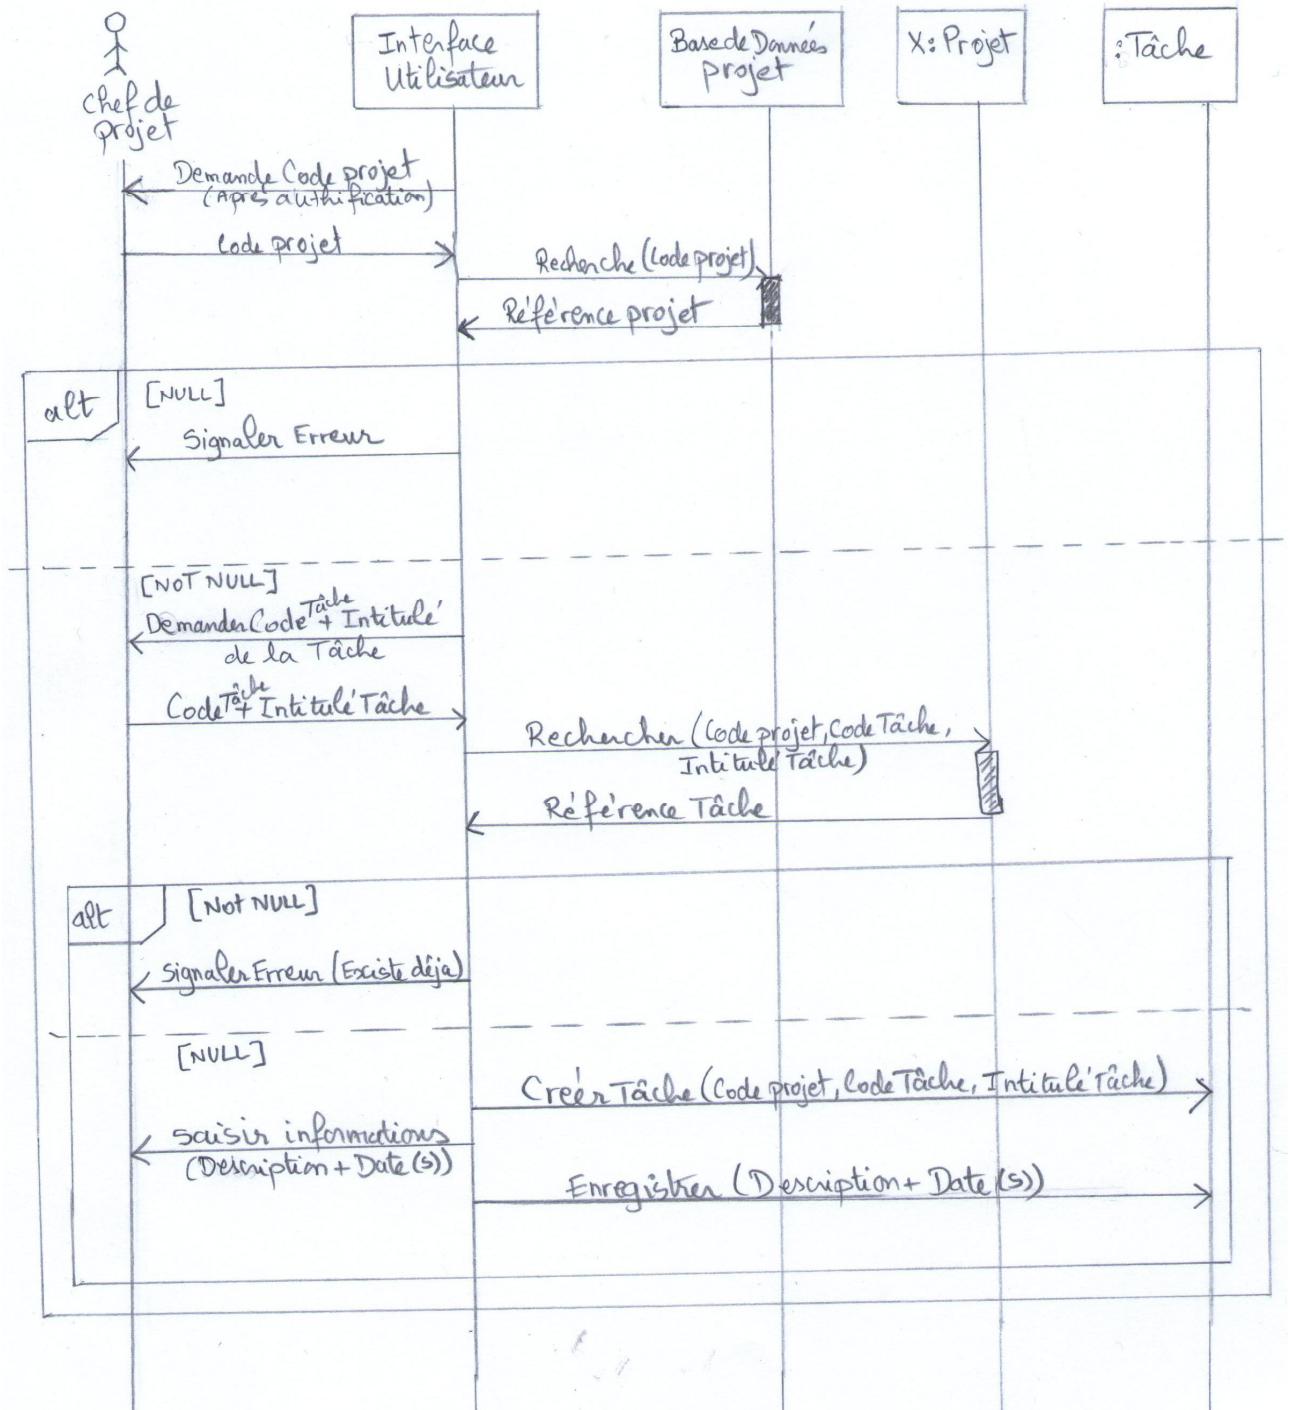 chef de
projet
Interface
Utilisateur
Base de Données
projet
X: Projet
: Tâche
Demande Code projet
(Après authification)
Code projet
Recherche (Code projet)
Référence projet
alt
[NULL]
Signaler Erreur
[NOT NULL]
Demander Code Tâche + Intitulé
de la Tâche
Code Tâche + Intitulé Tâche
Rechercher (Code projet, Code Tâche,
Intitulé Tâche)
Référence Tâche
alt
[Not NULL]
Signaler Erreur (Existe déja)
[NULL]
Creér Tâche (Code projet, Code Tâche, Intitulé Tâche)
saisir informations
(Description + Date(s))
Enregistrer (Description + Date(s))